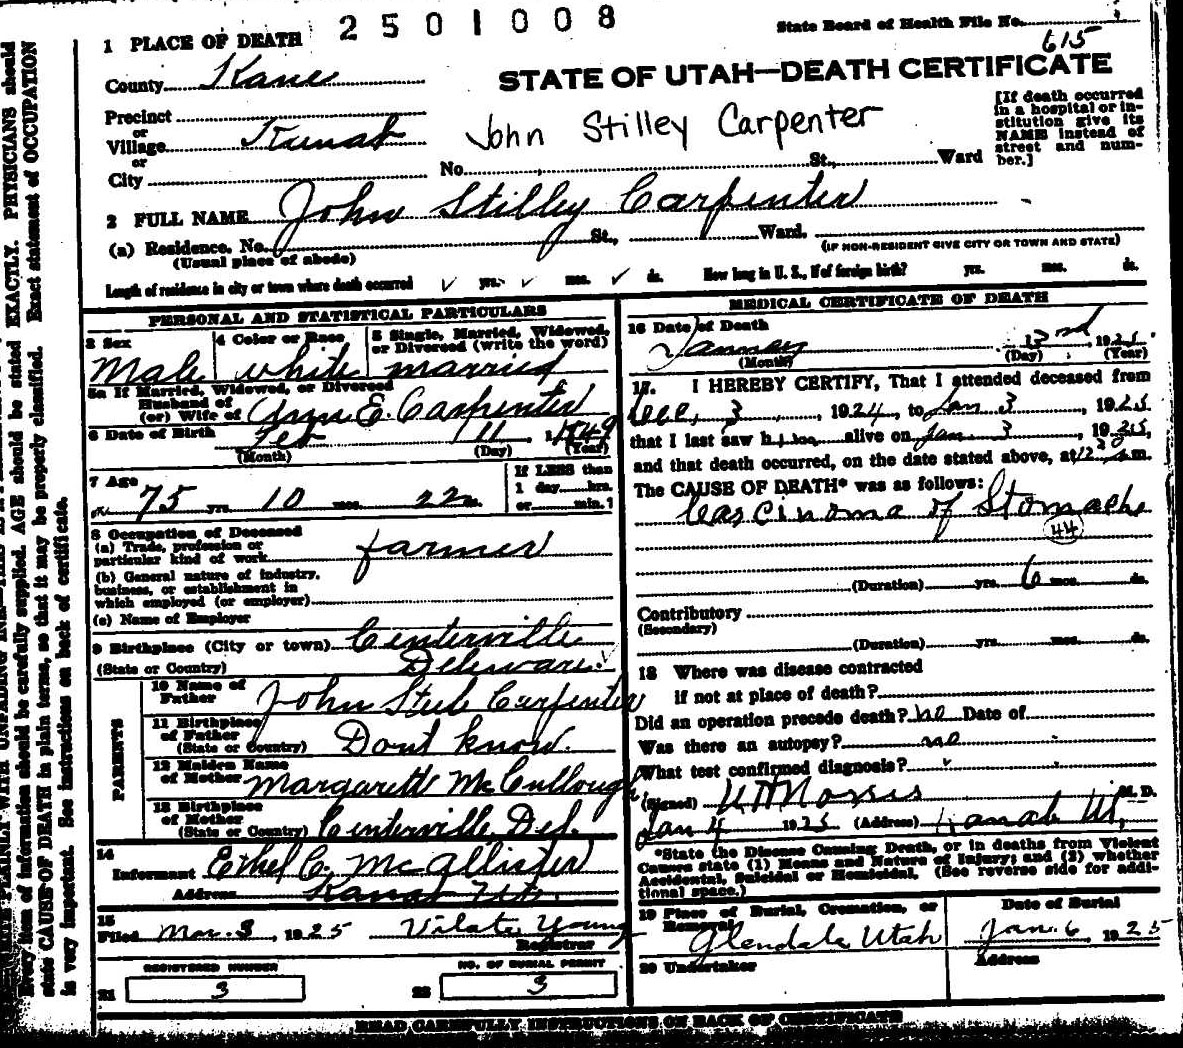 2501008
State Board of Health File No.
615
1 PLACE OF DEATH
STATE OF UTAH—DEATH CERTIFICATE
County Kane
Precinct
or
Village Kanab
or
City
John Stilley Carpenter
[If death occurred
in a hospital or in-
stitution give its
NAME instead of
street and num-
ber.]
No. St., Ward
2 FULL NAME John Stilley Carpenter
(a) Residence. No. St., Ward.
(Usual place of abode)
(IF NON-RESIDENT GIVE CITY OR TOWN AND STATE)
Length of residence in city or town where death occurred yrs. mos. ds. How long in U. S., if of foreign birth? yrs. mos. ds.
PERSONAL AND STATISTICAL PARTICULARS
3 Sex
Male
4 Color or Race
white
5 Single, Married, Widowed,
or Divorced (write the word)
married
5a If Married, Widowed, or Divorced
Husband of
(or) Wife of Ann E. Carpenter
6 Date of Birth Feb 11, 1849
(Month) (Day) (Year)
7 Age
75 yrs. 10 mos. 22 ds.
If LESS than
1 day hrs.
or min.?
8 Occupation of Deceased
(a) Trade, profession or
particular kind of work farmer
(b) General nature of industry,
business, or establishment in
which employed (or employer)
(c) Name of Employer
9 Birthplace (City or town) Centerville
(State or Country) Deleware
PARENTS
10 Name of
Father John Steel Carpenter
11 Birthplace
of Father
(State or Country) Dont know.
12 Maiden Name
of Mother Margarett McCullough
13 Birthplace
of Mother
(State or Country) Centerville, Del.
14
Informant Ethel C. McAllister
Address Kanab Ut.
15
Filed Mar. 3, 1925 Vilate Young
Registrar
REGISTERED NUMBER
21 3
NO. OF BURIAL PERMIT
22 3
MEDICAL CERTIFICATE OF DEATH
16 Date of Death
January 3rd, 1925
(Month) (Day) (Year)
17. I HEREBY CERTIFY, That I attended deceased from
Dec, 3, 1924, to Jan 3, 1925
that I last saw him alive on Jan. 3, 1925,
and that death occurred, on the date stated above, at 12 30 m.
The CAUSE OF DEATH* was as follows:
Carcinoma of Stomache
44
(Duration) yrs. 6 mos. ds.
Contributory
(Secondary)
(Duration) yrs. mos. ds.
18 Where was disease contracted
if not at place of death?
Did an operation precede death? no Date of
Was there an autopsy? no
What test confirmed diagnosis?
(Signed) Norris M. D.
Jan 4 1925 (Address) Kanab Ut,
*State the Disease Causing Death, or in deaths from Violent
Causes state (1) Means and Nature of Injury; and (2) whether
Accidental, Suicidal or Homicidal. (See reverse side for addi-
tional space.)
19 Place of Burial, Cremation, or
Removal
Glendale Utah
Date of Burial
Jan. 6, 1925
20 Undertaker
Address
READ CAREFULLY INSTRUCTIONS ON BACK OF CERTIFICATE
Every item of information should be carefully supplied. AGE should be stated EXACTLY. PHYSICIANS should
state CAUSE OF DEATH in plain terms, so that it may be properly classified. Exact statement of OCCUPATION
is very important. See instructions on back of certificate.